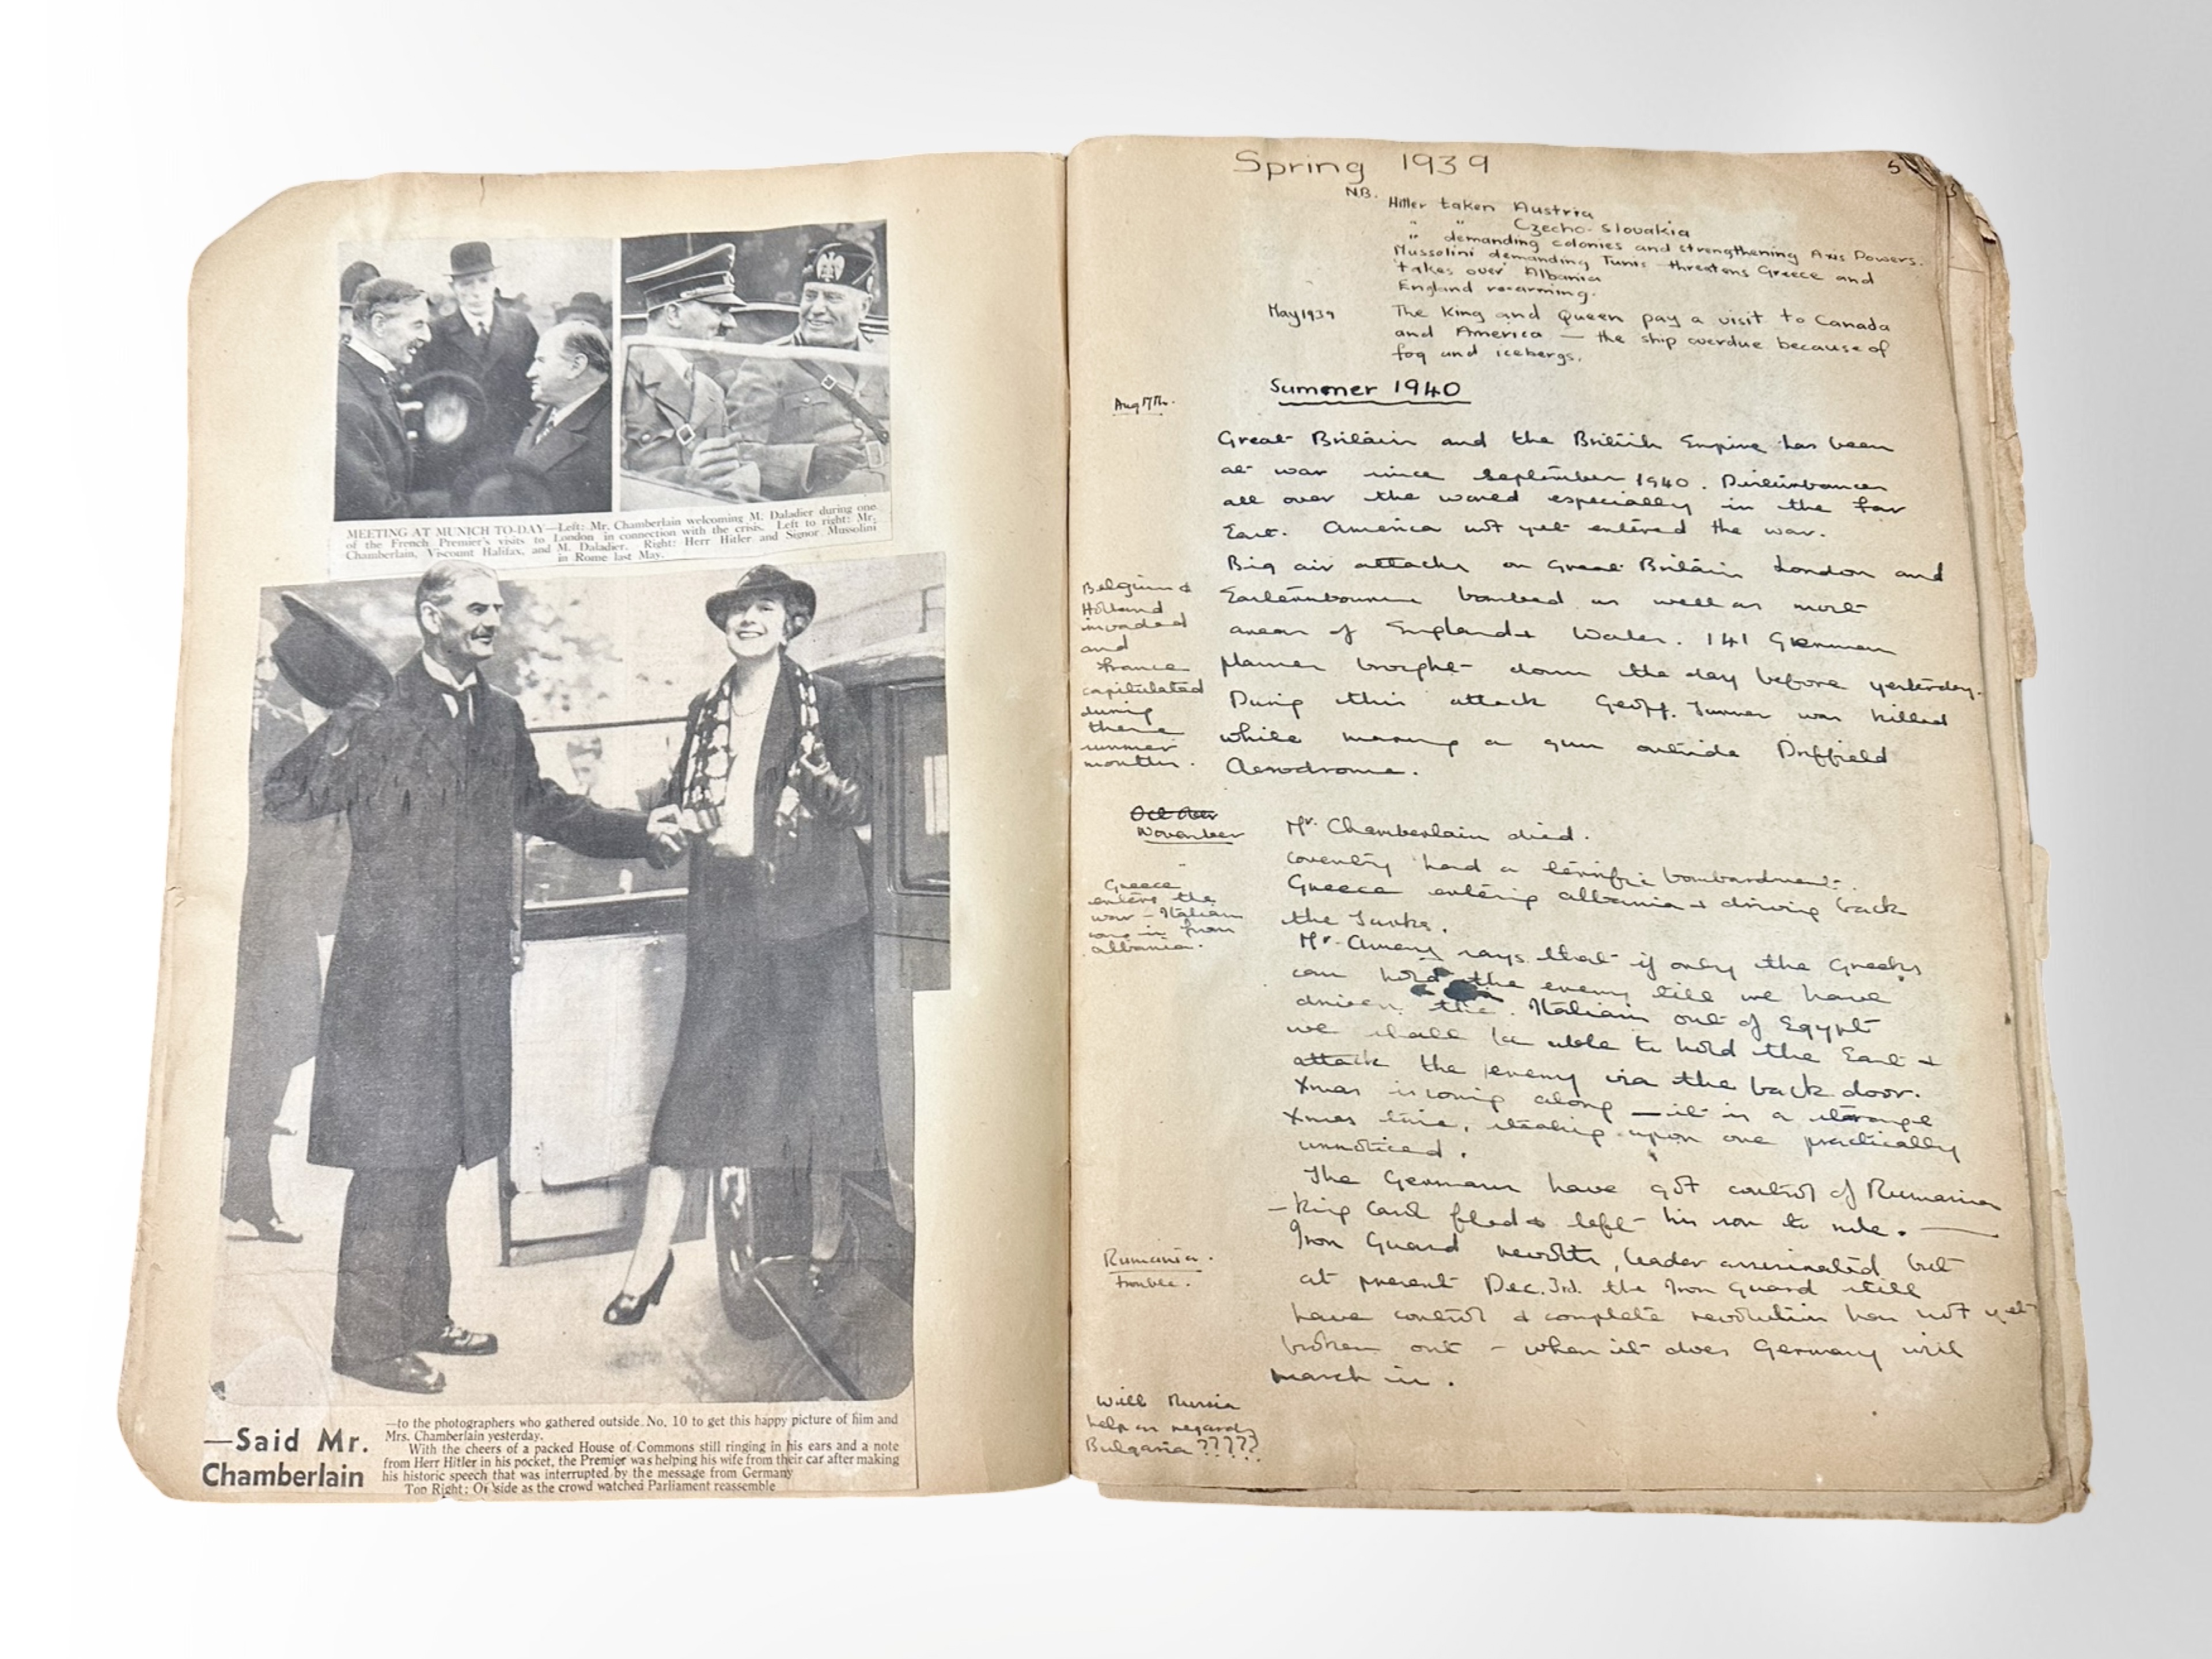 MEETING AT MUNICH TO-DAY—Left: Mr. Chamberlain welcoming M. Daladier during one
of the French Premier's visits to London in connection with the crisis. Left to right: Mr.
Chamberlain, Viscount Halifax, and M. Daladier. Right: Herr Hitler and Signor Mussolini
in Rome last May.
—Said Mr.
Chamberlain
—to the photographers who gathered outside No. 10 to get this happy picture of him and
Mrs. Chamberlain yesterday.
With the cheers of a packed House of Commons still ringing in his ears and a note
from Herr Hitler in his pocket, the Premier was helping his wife from their car after making
his historic speech that was interrupted by the message from Germany
Top Right: Outside as the crowd watched Parliament reassemble
Spring 1939
5
N.B. Hitler taken Austria
" " Czecho-Slovakia
" demanding colonies and strengthening Axis Powers.
Mussolini demanding Tunis threatens Greece and
takes over Albania
England re-arming.
May 1939
The King and Queen pay a visit to Canada
and America — the ship overdue because of
fog and icebergs.
Summer 1940
Aug 17th.
Great Britain and the British Empire has been
at war since September 1940. Disturbances
all over the world especially in the far
East. America not yet entered the war.
Big air attacks on Great Britain London and
Eastbourne bombed as well as most
areas of England & Wales. 141 German
planes brought down the day before yesterday.
During this attack Geoff. was killed
while manning a gun outside Driffield
Aerodrome.
Belgium &
Holland
invaded
and
France
capitulated
during
these
summer
months.
October
November
Mr. Chamberlain died.
Coventry had a terrific bombardment.
Greece entering Albania & driving back
the Turks.
Greece
enters the
war - Italians
come in from
Albania.
Mr. Amery says that if only the Greeks
can hold the enemy till we have
driven the Italians out of Egypt
we shall be able to hold the East &
attack the enemy via the back door.
Xmas is coming along — it is a strange
Xmas time, stealing upon one practically
unnoticed.
The Germans have got control of Rumania
- King Carol fled & left his son to rule. —
Iron Guard revolts, leader assassinated but
at present Dec. 3rd. the Iron Guard still
have control & complete revolution has not yet
broken out - when it does Germany will
march in.
Rumania.
trouble.
Will Russia
help as regards
Bulgaria ?????